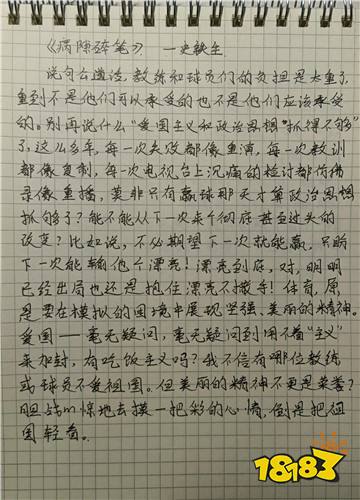 《病隙碎笔》 一史铁生
说句公道话,教练和球员们的负担是太重了,
重到不是他们可以承受的也不是他们应该承受
的。别再说什么“爱国主义和政治思想”抓得不够”
了,这么多年,每一次失败都像重演,每一次教训
都像复制,每一次电视台上沉痛的检讨都仿佛
录像重播,莫非只有赢球那天才算政治思想
抓够了?能不能从下一次来个彻底甚至过头的
改变?比如说,不必期望下一次就能赢,只盼
下一次能输他个漂亮!漂亮到底,对,明明
已经出局也还是抱住漂亮不撒手!体育,原
是要在模拟的困境中展现坚强、美丽的精神。
爱国一毫无疑问,毫无疑问到用不着“主义”
来加封,有吃饭主义吗?我不信有哪位教练
或球员不爱祖国。但美丽的精神不更是荣誉?
胆战心惊地去摸一把彩的心情,倒是把祖
国轻看。
18183